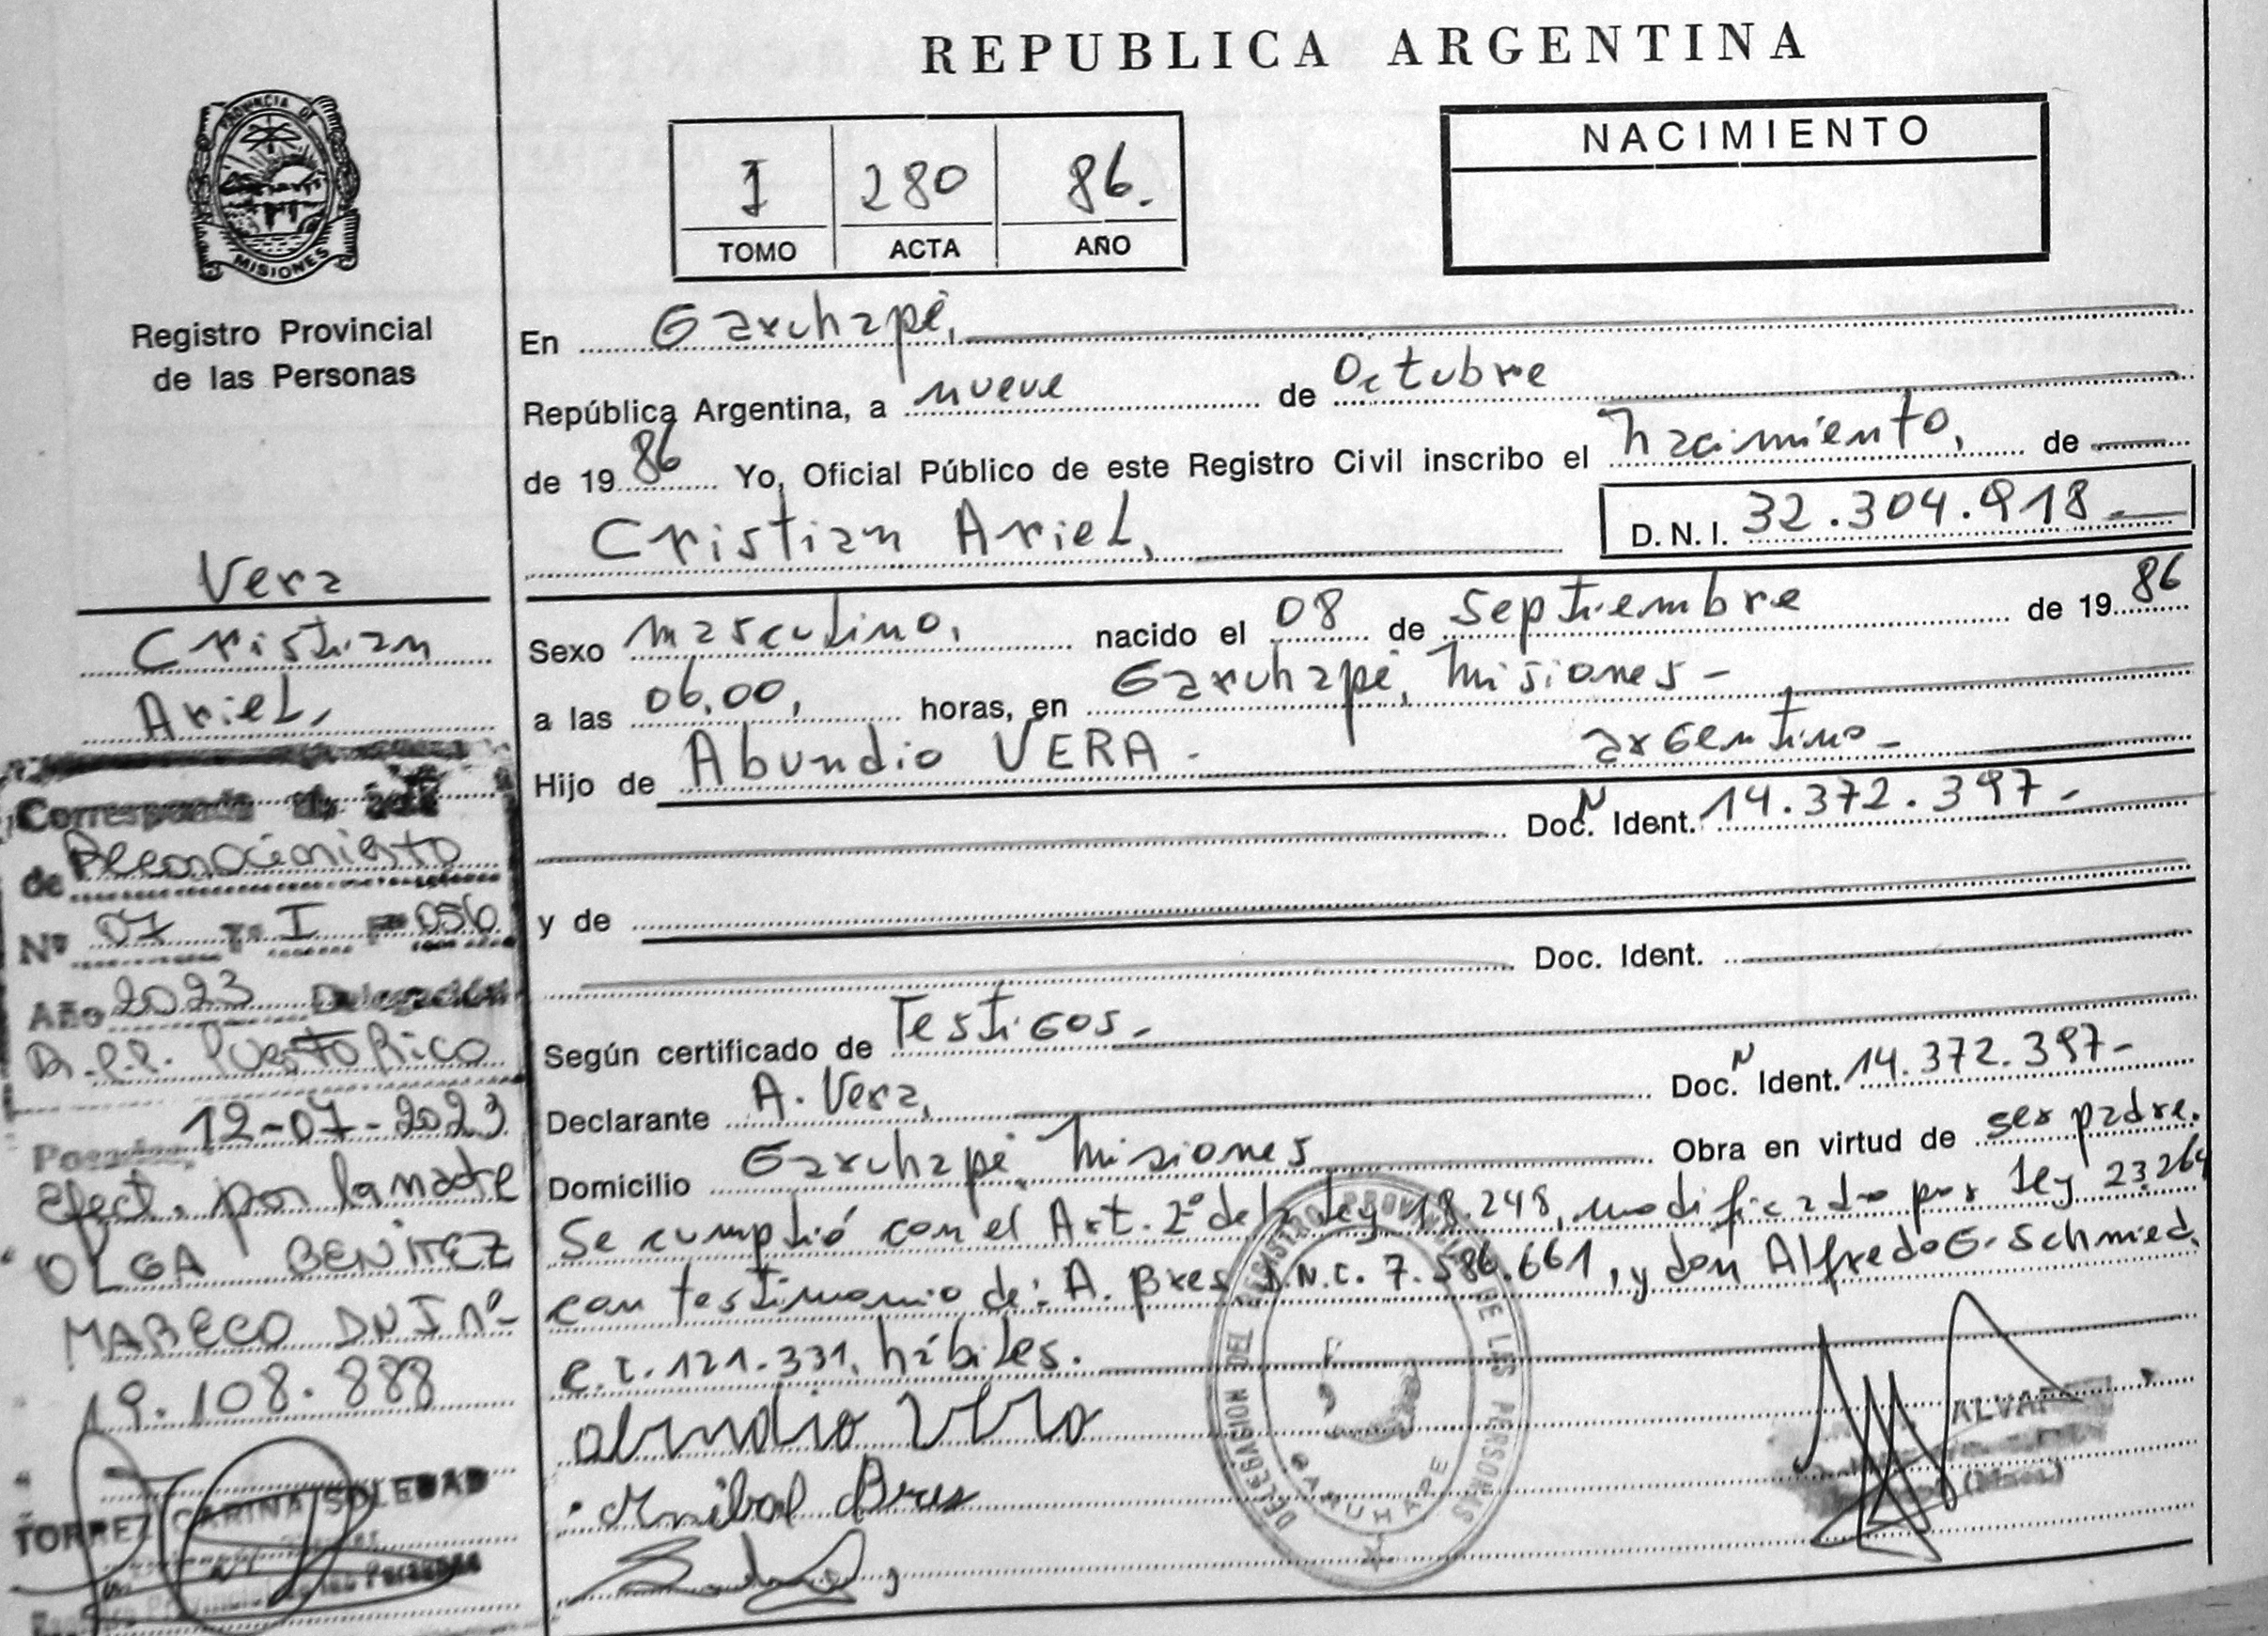 REPUBLICA ARGENTINA
PROVINCIA DE
MISIONES
Registro Provincial
de las Personas
I 280 86.
TOMO ACTA AÑO
NACIMIENTO
En Garuhapé,
República Argentina, a nueve de Octubre
de 1986 Yo, Oficial Público de este Registro Civil inscribo el nacimiento, de
Cristian Ariel,
D.N.I. 32.304.918.-
Sexo masculino, nacido el 08 de Septiembre de 1986
a las 06,00, horas, en Garuhapé, Misiones-
Hijo de Abundio VERA- argentino-
Doc. N Ident. 14.372.397-
y de
Doc. Ident.
Según certificado de Testigos-
Declarante A. Vera, Doc. N Ident. 14.372.397-
Domicilio Garuhapé, Misiones Obra en virtud de ser padre.
Se cumplió con el Art. 2º de la Ley 18.248, modificado por Ley 23.264
con testimonio de: A. Bres, D.N.I. 7.586.661, y don Alfredo G. Schmied,
c.i. 121.331, hábiles.
abundio Vera
Anibal Bres
DELEGACION DEL REGISTRO PROVINCIAL DE LAS PERSONAS
GARUHAPE
ALVAR
(Mnes.)
Vera
Cristian
Ariel,
Corresponde al acta
de Reconocimiento
Nº 07 Tº I Fº 056
Año 2023 Delegación
R.P.P. Puerto Rico
Posadas, 12-07-2023
Efect. por la madre
OLGA BENITEZ
MARECO DNI nº-
19.108.888
TORREZ CARINA SOLEDAD
Registro Provincial de las Personas